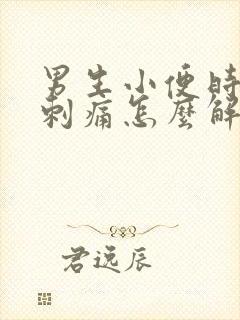 男生小便時
刺痛怎麼解
君远辰